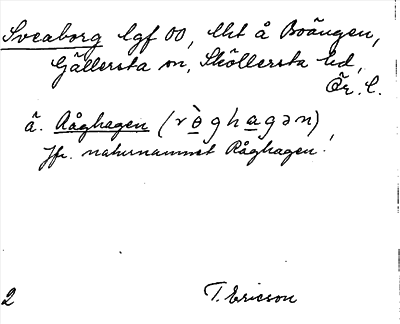 Sveaborg lgf 00, lht å Boängen,
Gällersta sn, Sköllersta hd,
Ör. l.
ä. Råghagen (rò̱gha̱gən),
Jfr. naturnamnet Råghagen.
2 T. Ericson